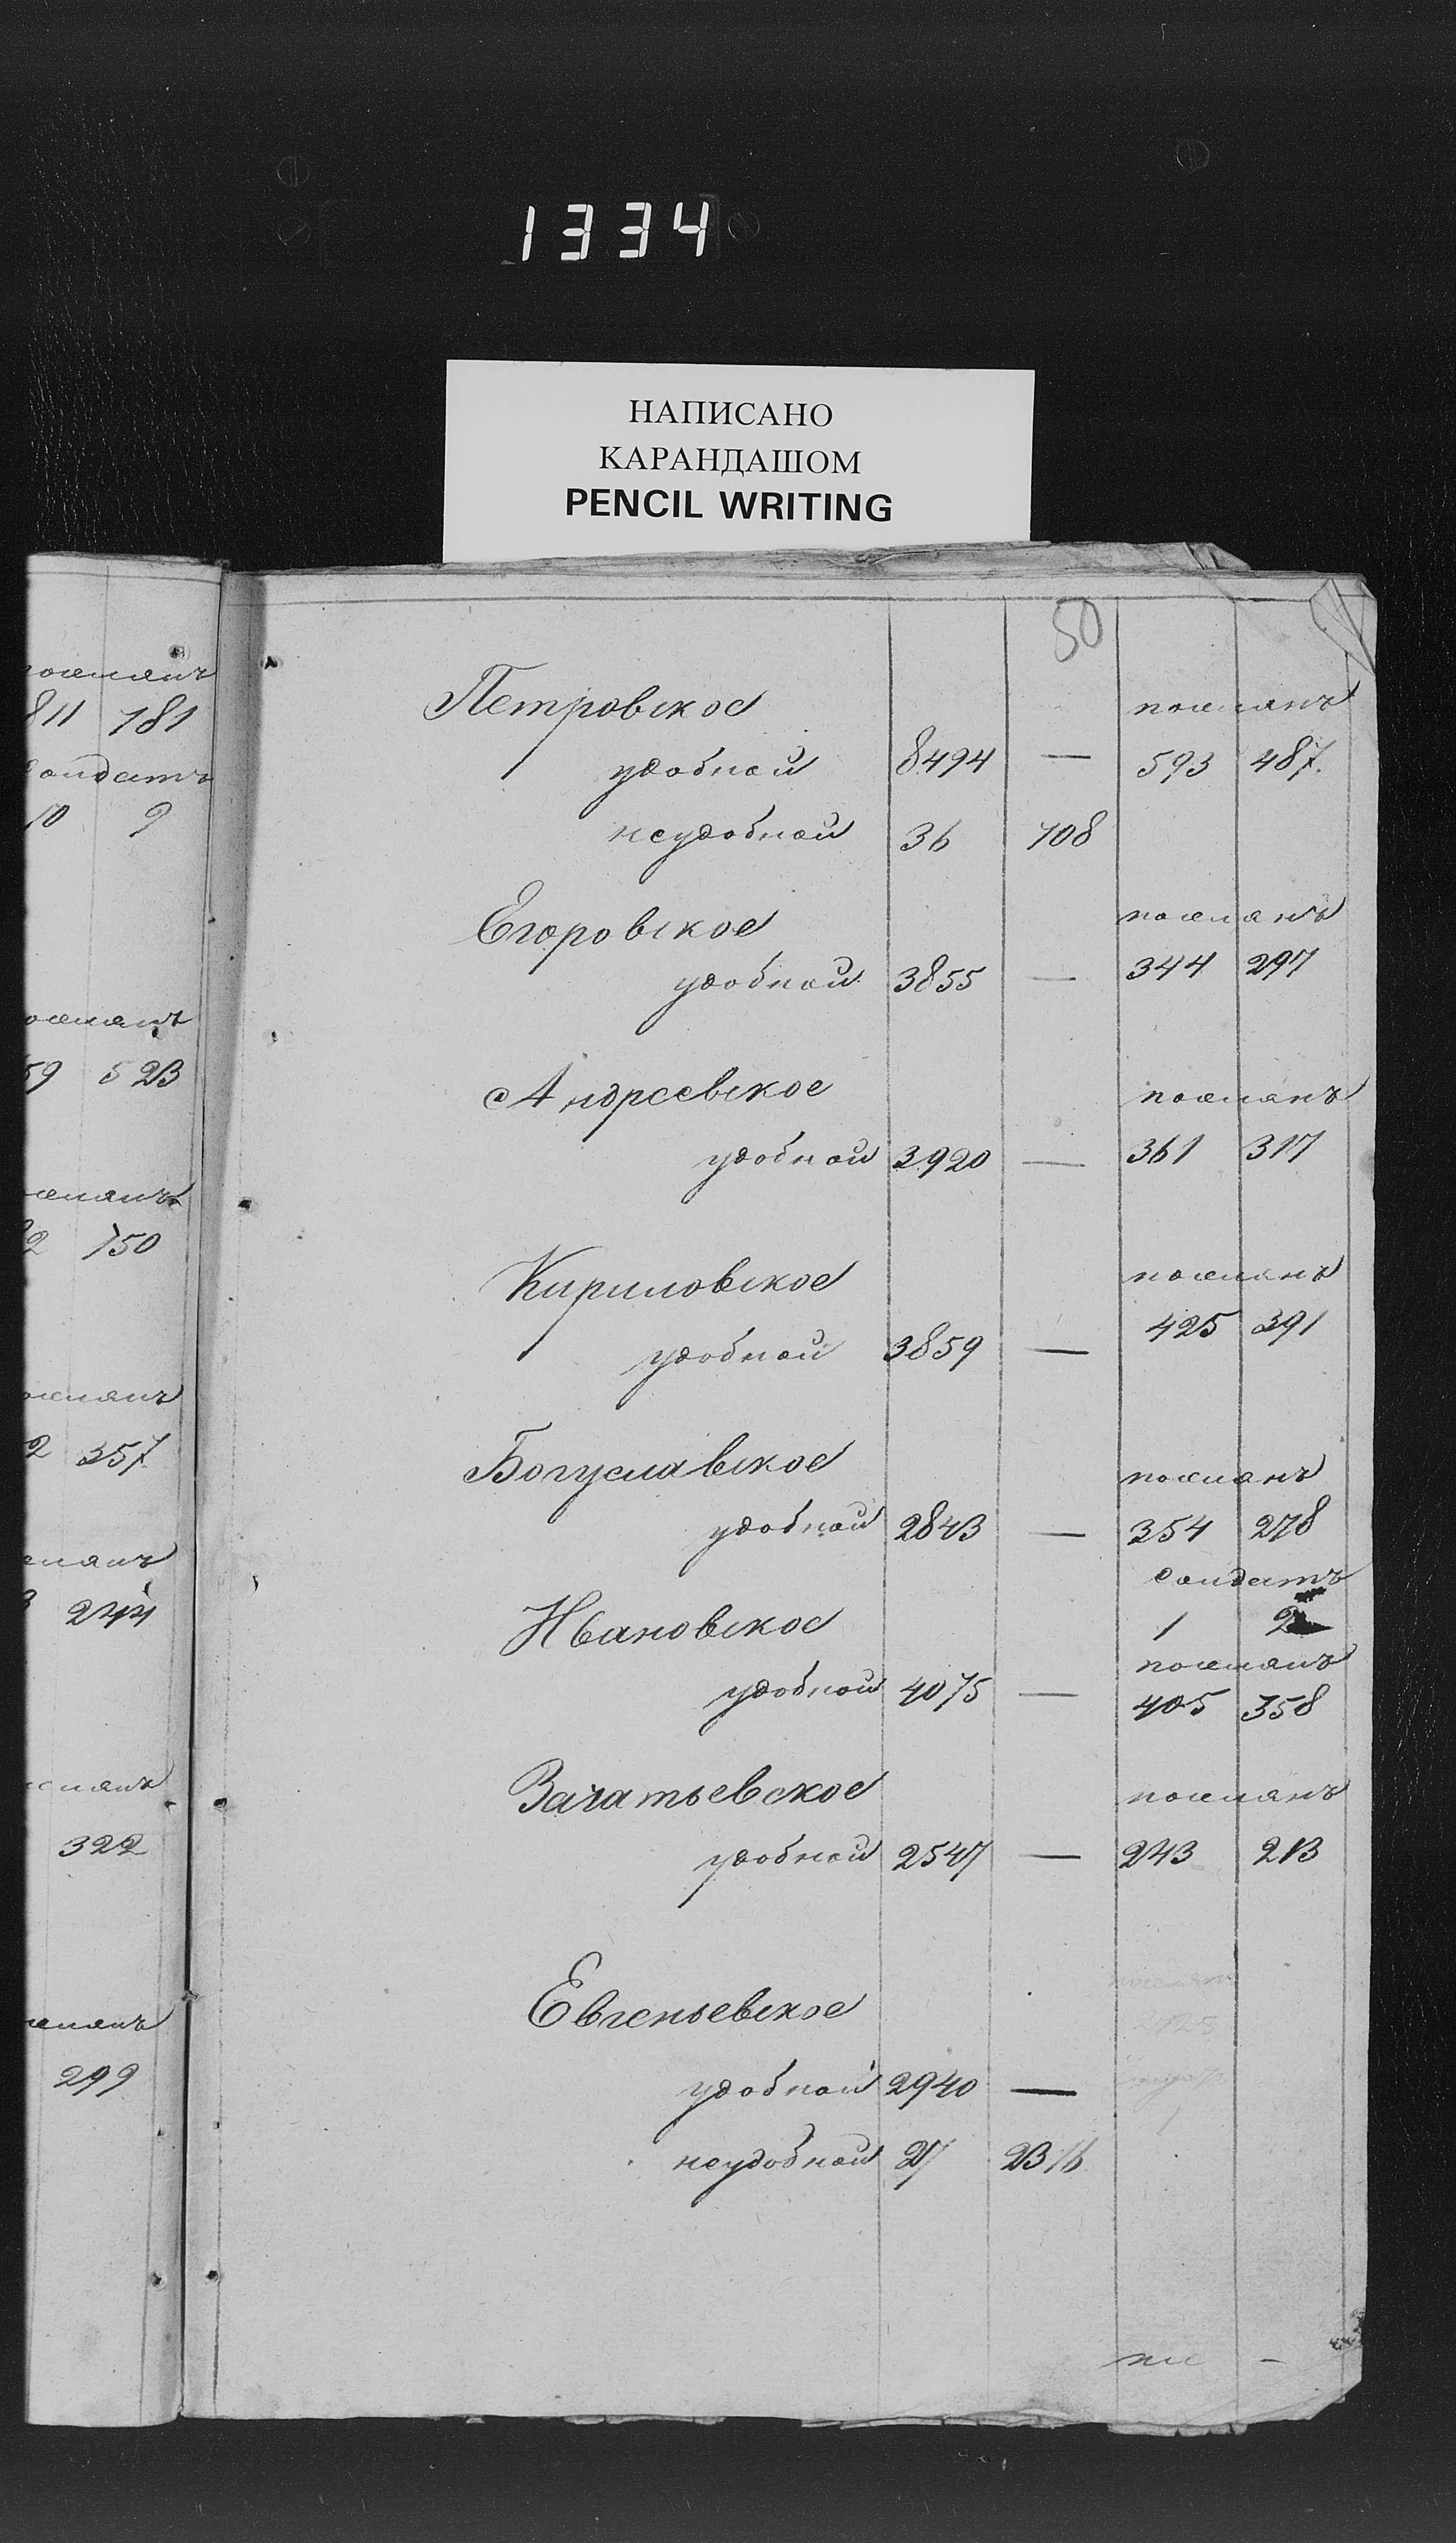 1334
НАПИСАНО
КАРАНДАШОМ
PENCIL WRITING
811 181
10 9
59 523
2 150
2 357
244
322
299
50
Петровское поселянъ
удобной 8494 — 593 487.
неудобной 36 708
Егоровское поселянъ
удобной 3855 — 344 297
Андреевское поселянъ
удобной 3920 — 361 317
Кириловское поселянъ
425 391
удобной 3859 —
Богуславское поселянъ
удобной 2843 — 354 278
солдатъ
Ивановское 1 2
поселянъ
удобной 4075 — 405 358
Зачатьевское поселянъ
удобной 2547 — 243 213
Евгеньевское
удобной 2940 —
неудобной 27 2316